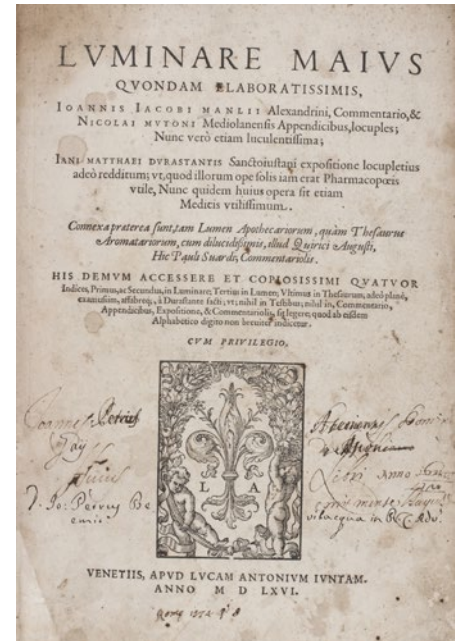 LVMINARE MAIVS
QVONDAM ELABORATISSIMIS,
IOANNIS IACOBI MANLII Alexandrini, Commentario, &
NICOLAI MVTONI Mediolanensis Appendicibus, locuples;
Nunc verò etiam luculentissima;
IANI MATTHAEI DVRASTANTIS Sanctoiustani expositione locupletius
adeò redditum; vt, quod illorum ope solis iam erat Pharmacopœis
vtile, Nunc quidem huius opera sit etiam
Medicis vtilissimum.
Connexa præterea sunt, tam Lumen Apothecariorum, quàm Thesaurus
Aromatariorum, cum dilucidissimis, illud Quirici Augusti,
Hic Pauli Suardi, Commentariolis.
HIS DEMVM ACCESSERE ET COPIOSISSIMI QVATVOR
Indices, Primus, ac Secundus, in Luminare; Tertius in Lumen; Vltimus in Thesaurum, adeò planè,
examussim, affabreq; à Durastante facti, vt; nihil in Textibus; nihil in, Commentario,
Appendicibus, Expositione, & Commentariolis, sit legere; quod ab eisdem
Alphabetico digito non breuiter indicetur.
CVM PRIVILEGIO.
Ioannes Petrus
L A
D. Jo: Petrus Be
VENETIIS, APVD LVCAM ANTONIVM IVNTAM.
ANNO M D LXVI.